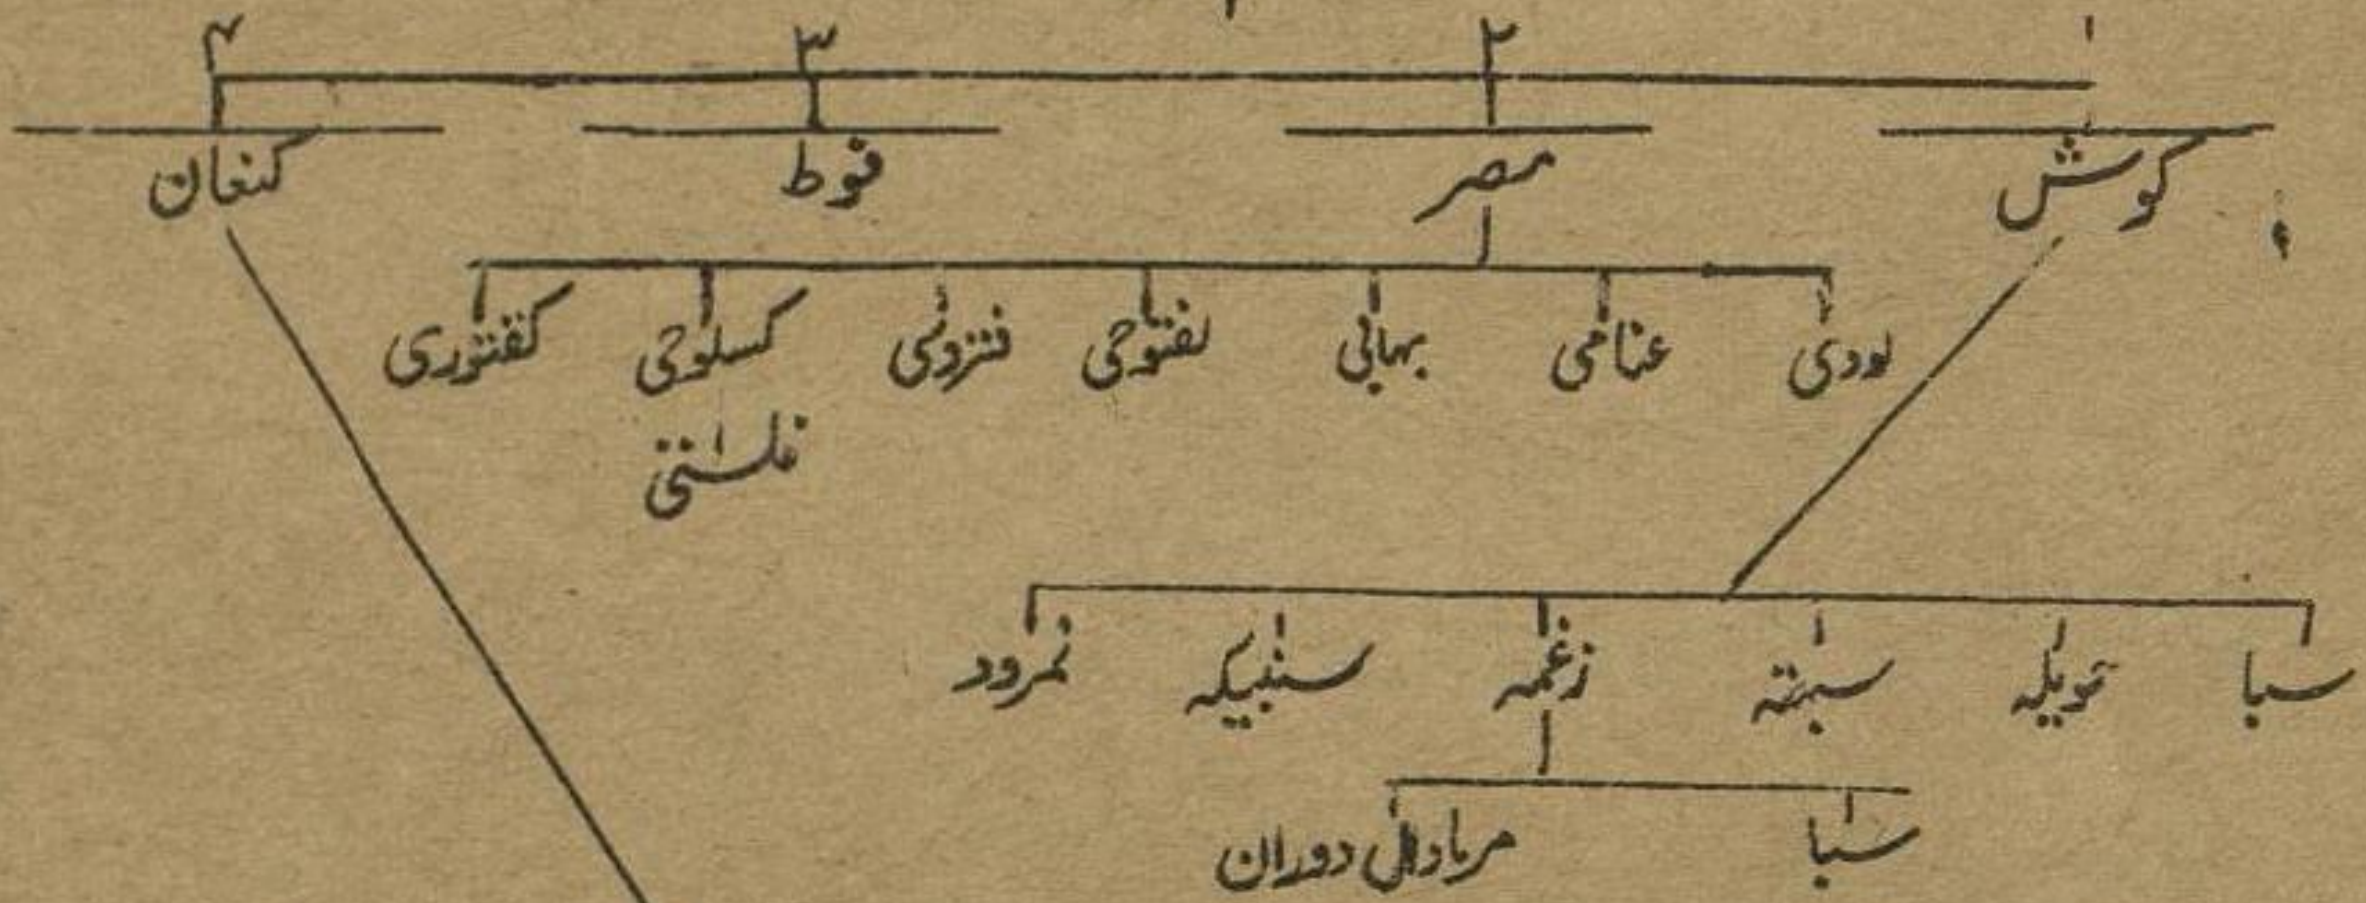 ۱ ۲ ۳ ۴
کوش مصر فوط کنعان
لودی عنامی بہابی لفتوحی فتروسی کسلوحی کفتوری
فلستی
سبا حویلہ سبتہ زغمہ سبتیکہ نمرود
سبا دوران